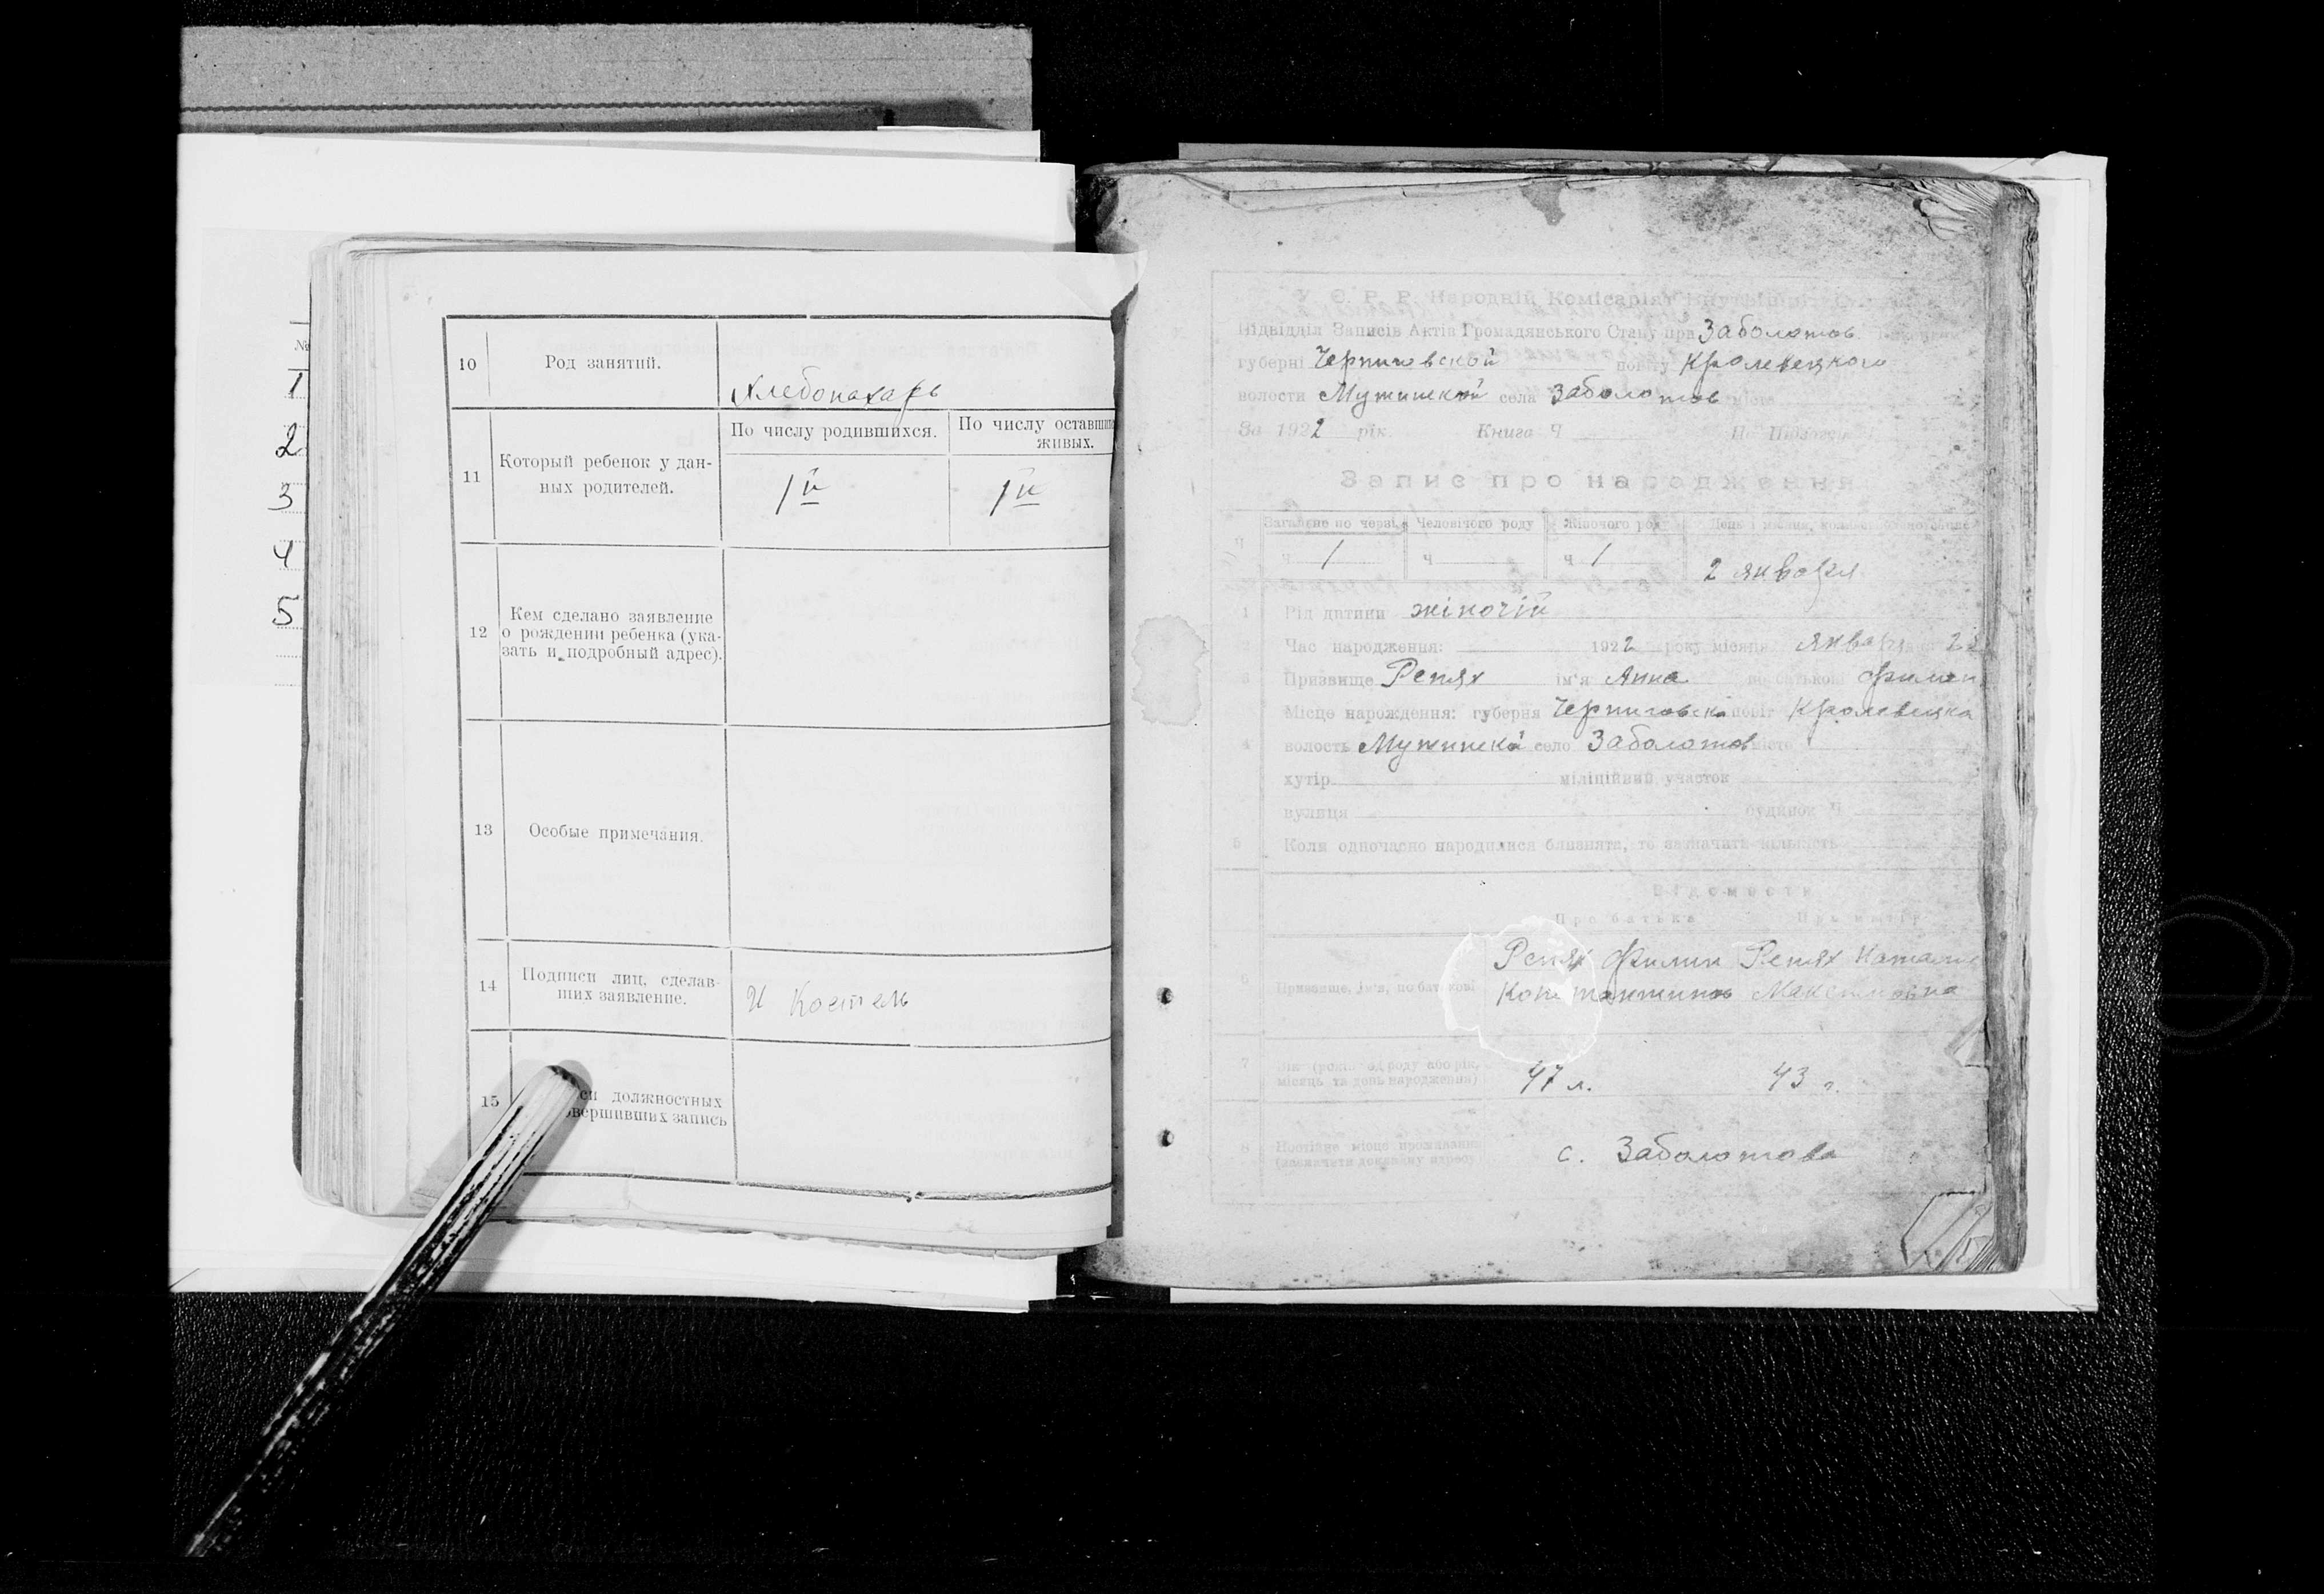 №
1
2
3
4
5
10 Род занятий. Хлебопахарь
11 Который ребенок у дан-
ных родителей.
По числу родившихся. По числу оставши
живых.
1й 1й
12 Кем сделано заявление
о рождении ребенка (ука-
зать и подробный адрес).
13 Особые примечания.
14 Подписи лиц, сделав-
ших заявление.
И Костель
15 си должностных
овершивших запись
У. С. Р. Р. Народній Комісаріят Внутрішніх
Відділ Записів Актів Громадянського Стану при Заболотов
губерні Черниговской повіту Кролевецкого
волости Мутинской села Заболотов місто
За 1922 рік. Книга Ч
Запис про народження
Загальне по черзі Человічого роду Жіночого роду
Ч 1 Ч Ч 1 2 января
1 Рід дитини жіночій
2 Час народження: 1922 року місяця января 2
3 Призвище Репях ім'я Анна по батькові Филип
4 Місце народження: губерня Черниговска повіт Кролевецка
волость Мутинска село Заболотов місто
хутір міліційний участок
вулиця будинок Ч
5 Коли одночасно народилися близнята, то зазначать кількість
Відомости
Про батька Про матір
6 Призвище, ім'я, по батькові
Репях Филип Репях Наталия
Константинов Максимовна
7 Вік (років од роду або рік,
місяць та день народження)
47 л. 43 г.
8 Постійне місце проживання
(зазначити докладну адресу)
с. Заболотова